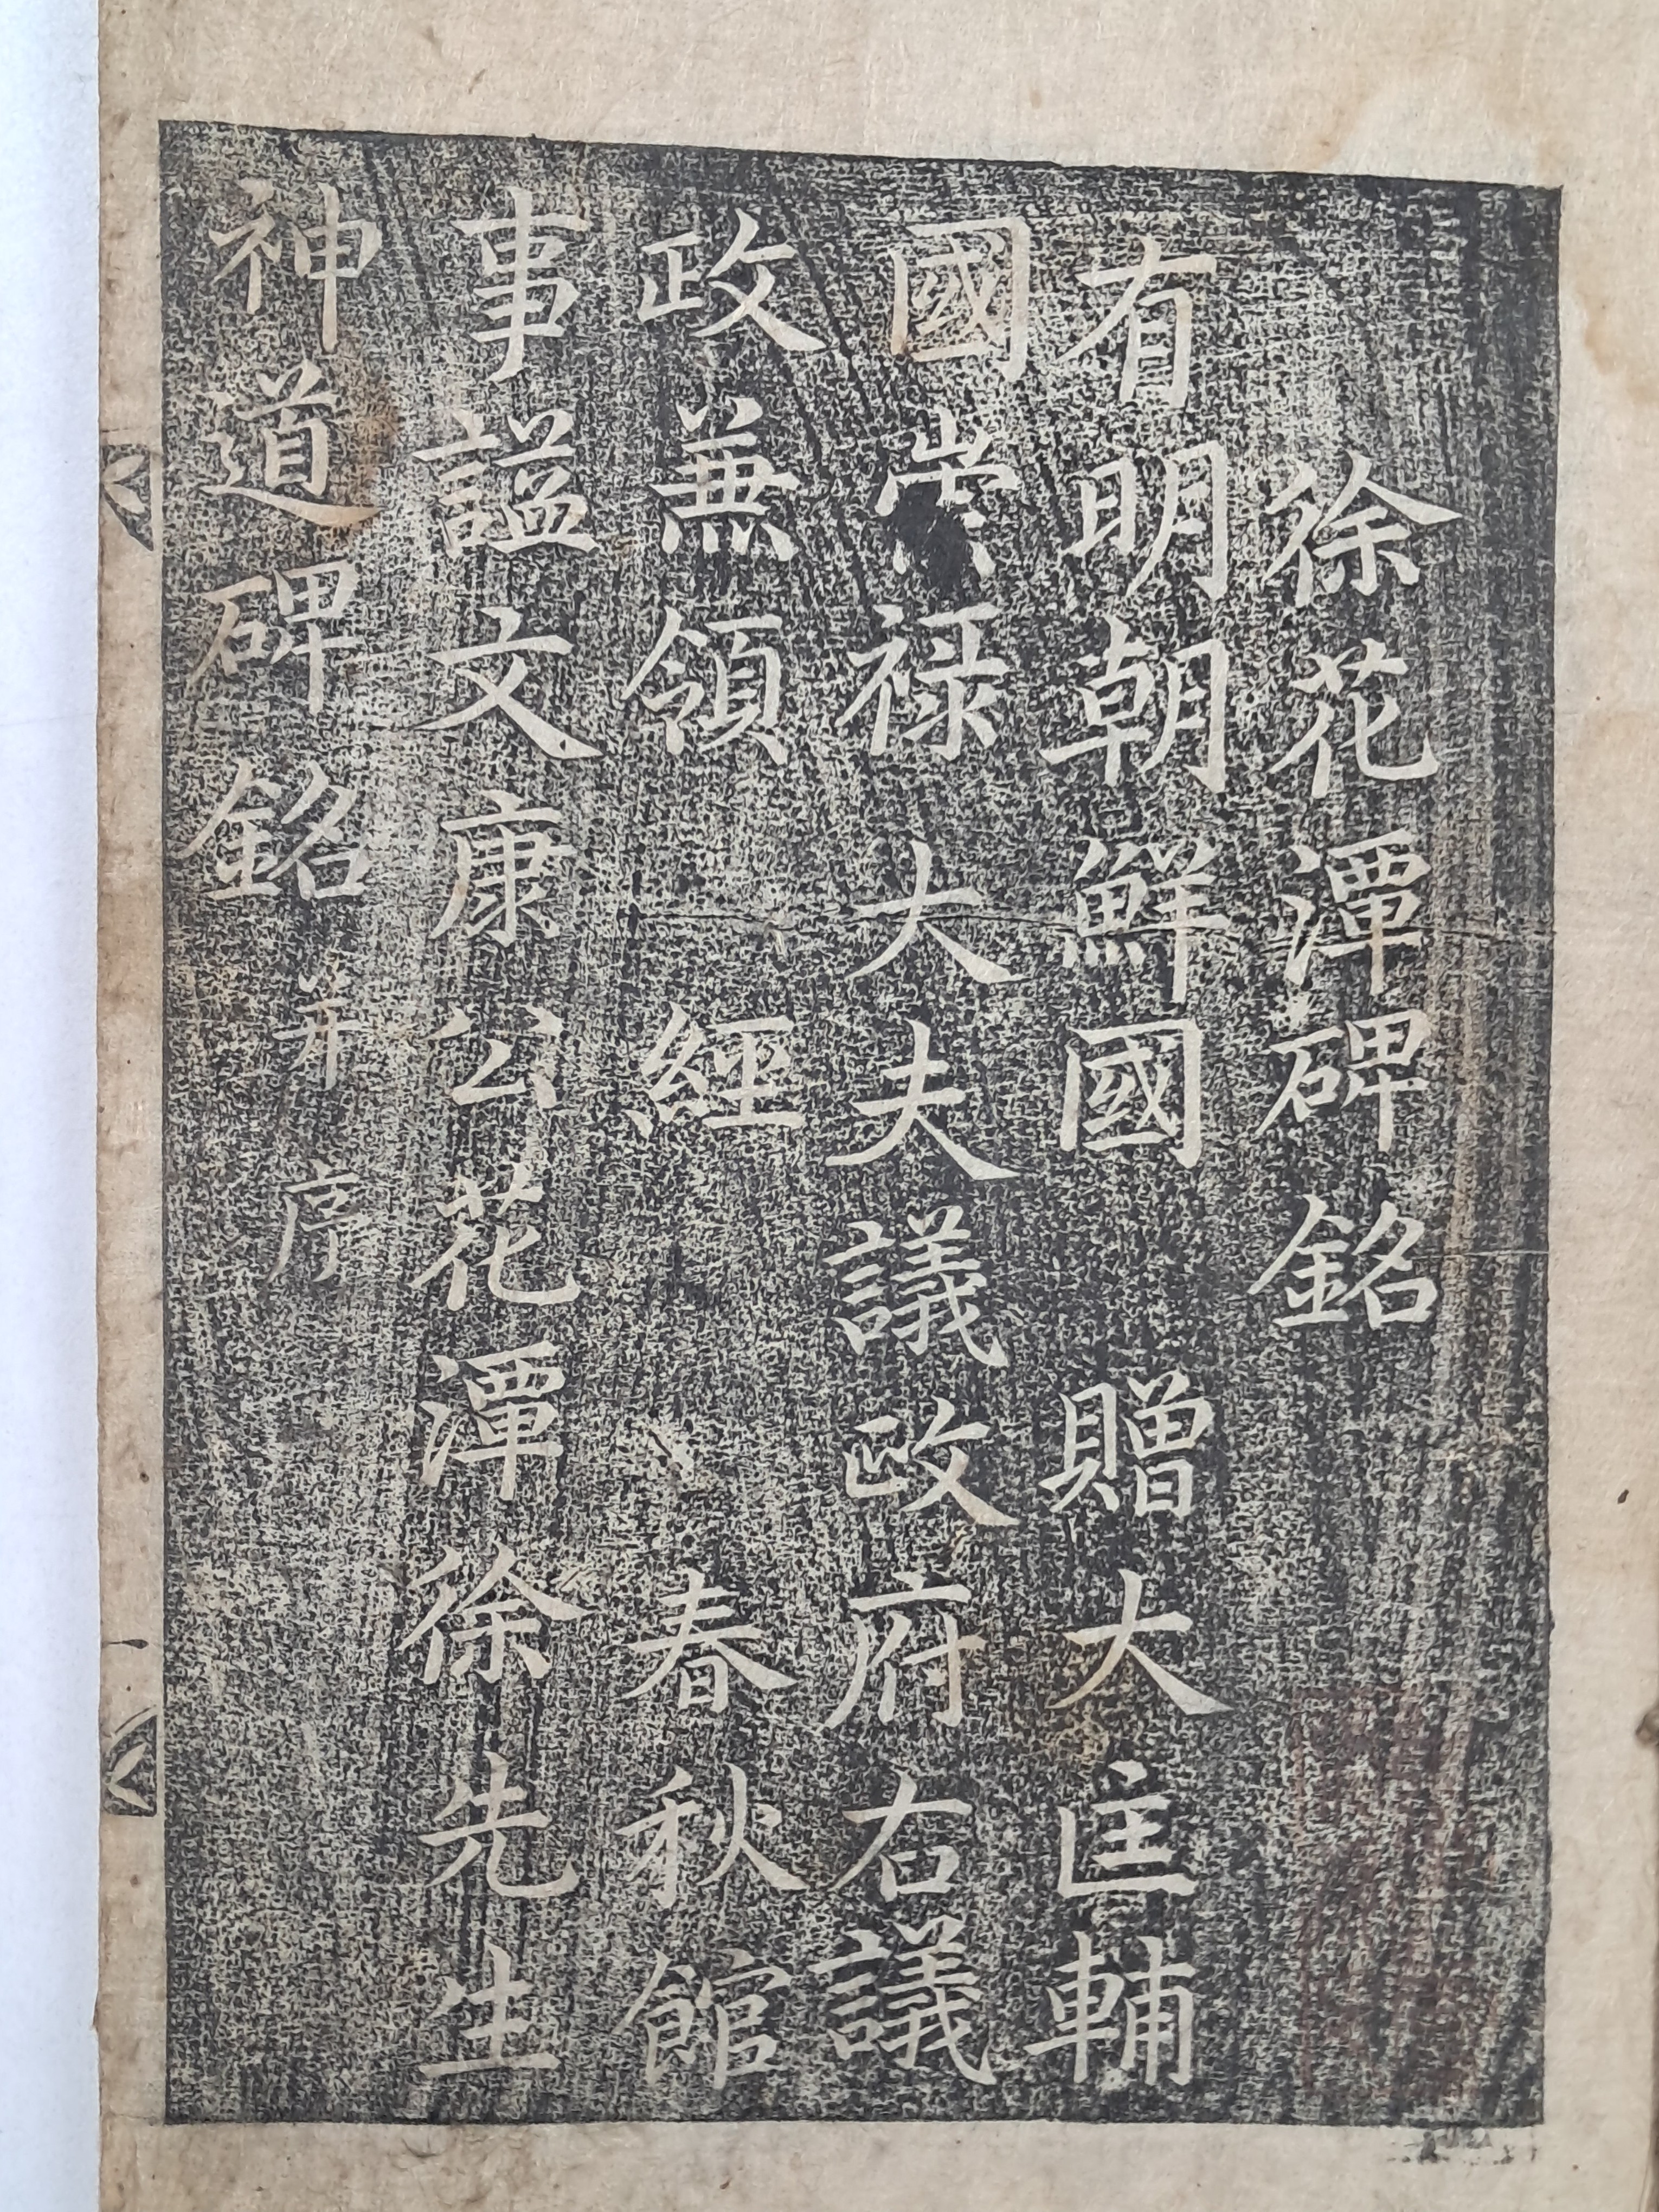 徐花潭碑銘
有明朝鮮國 贈大匡輔
國崇祿大夫議政府右議
政兼領 經 春秋館
事謚文康公花潭徐先生
神道碑銘 并序